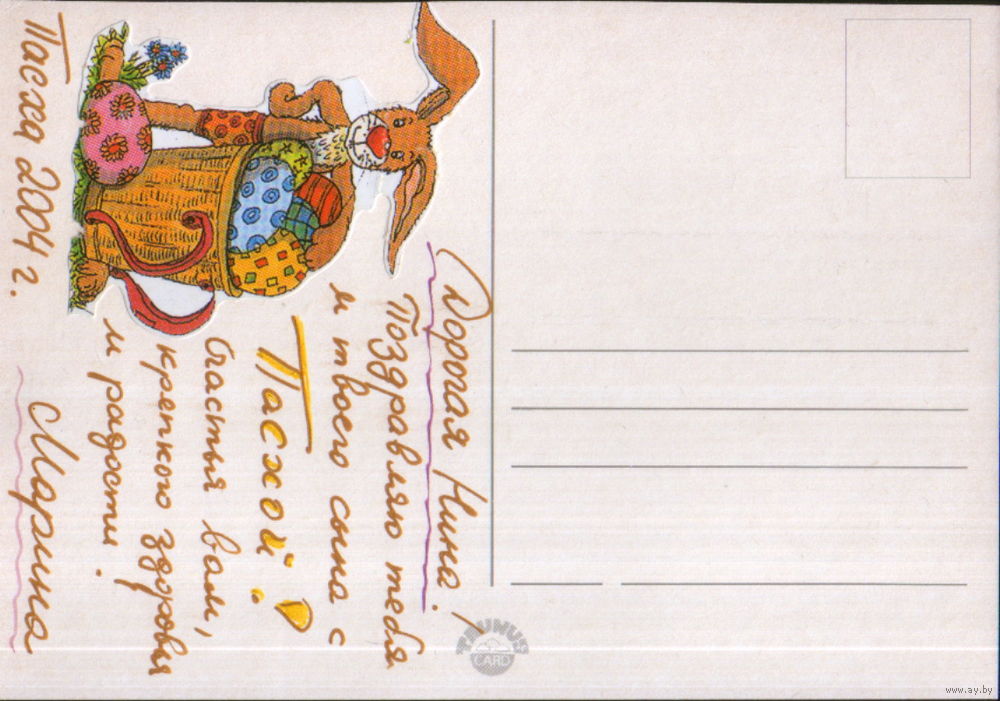 Дорогая Нина!
Поздравляю тебя
и твоего сына с
Пасхой!
Счастья вам,
крепкого здоровья
и радости!
Марина
Пасха 2004 г.
TAUNUS
CARD
www.ay.by